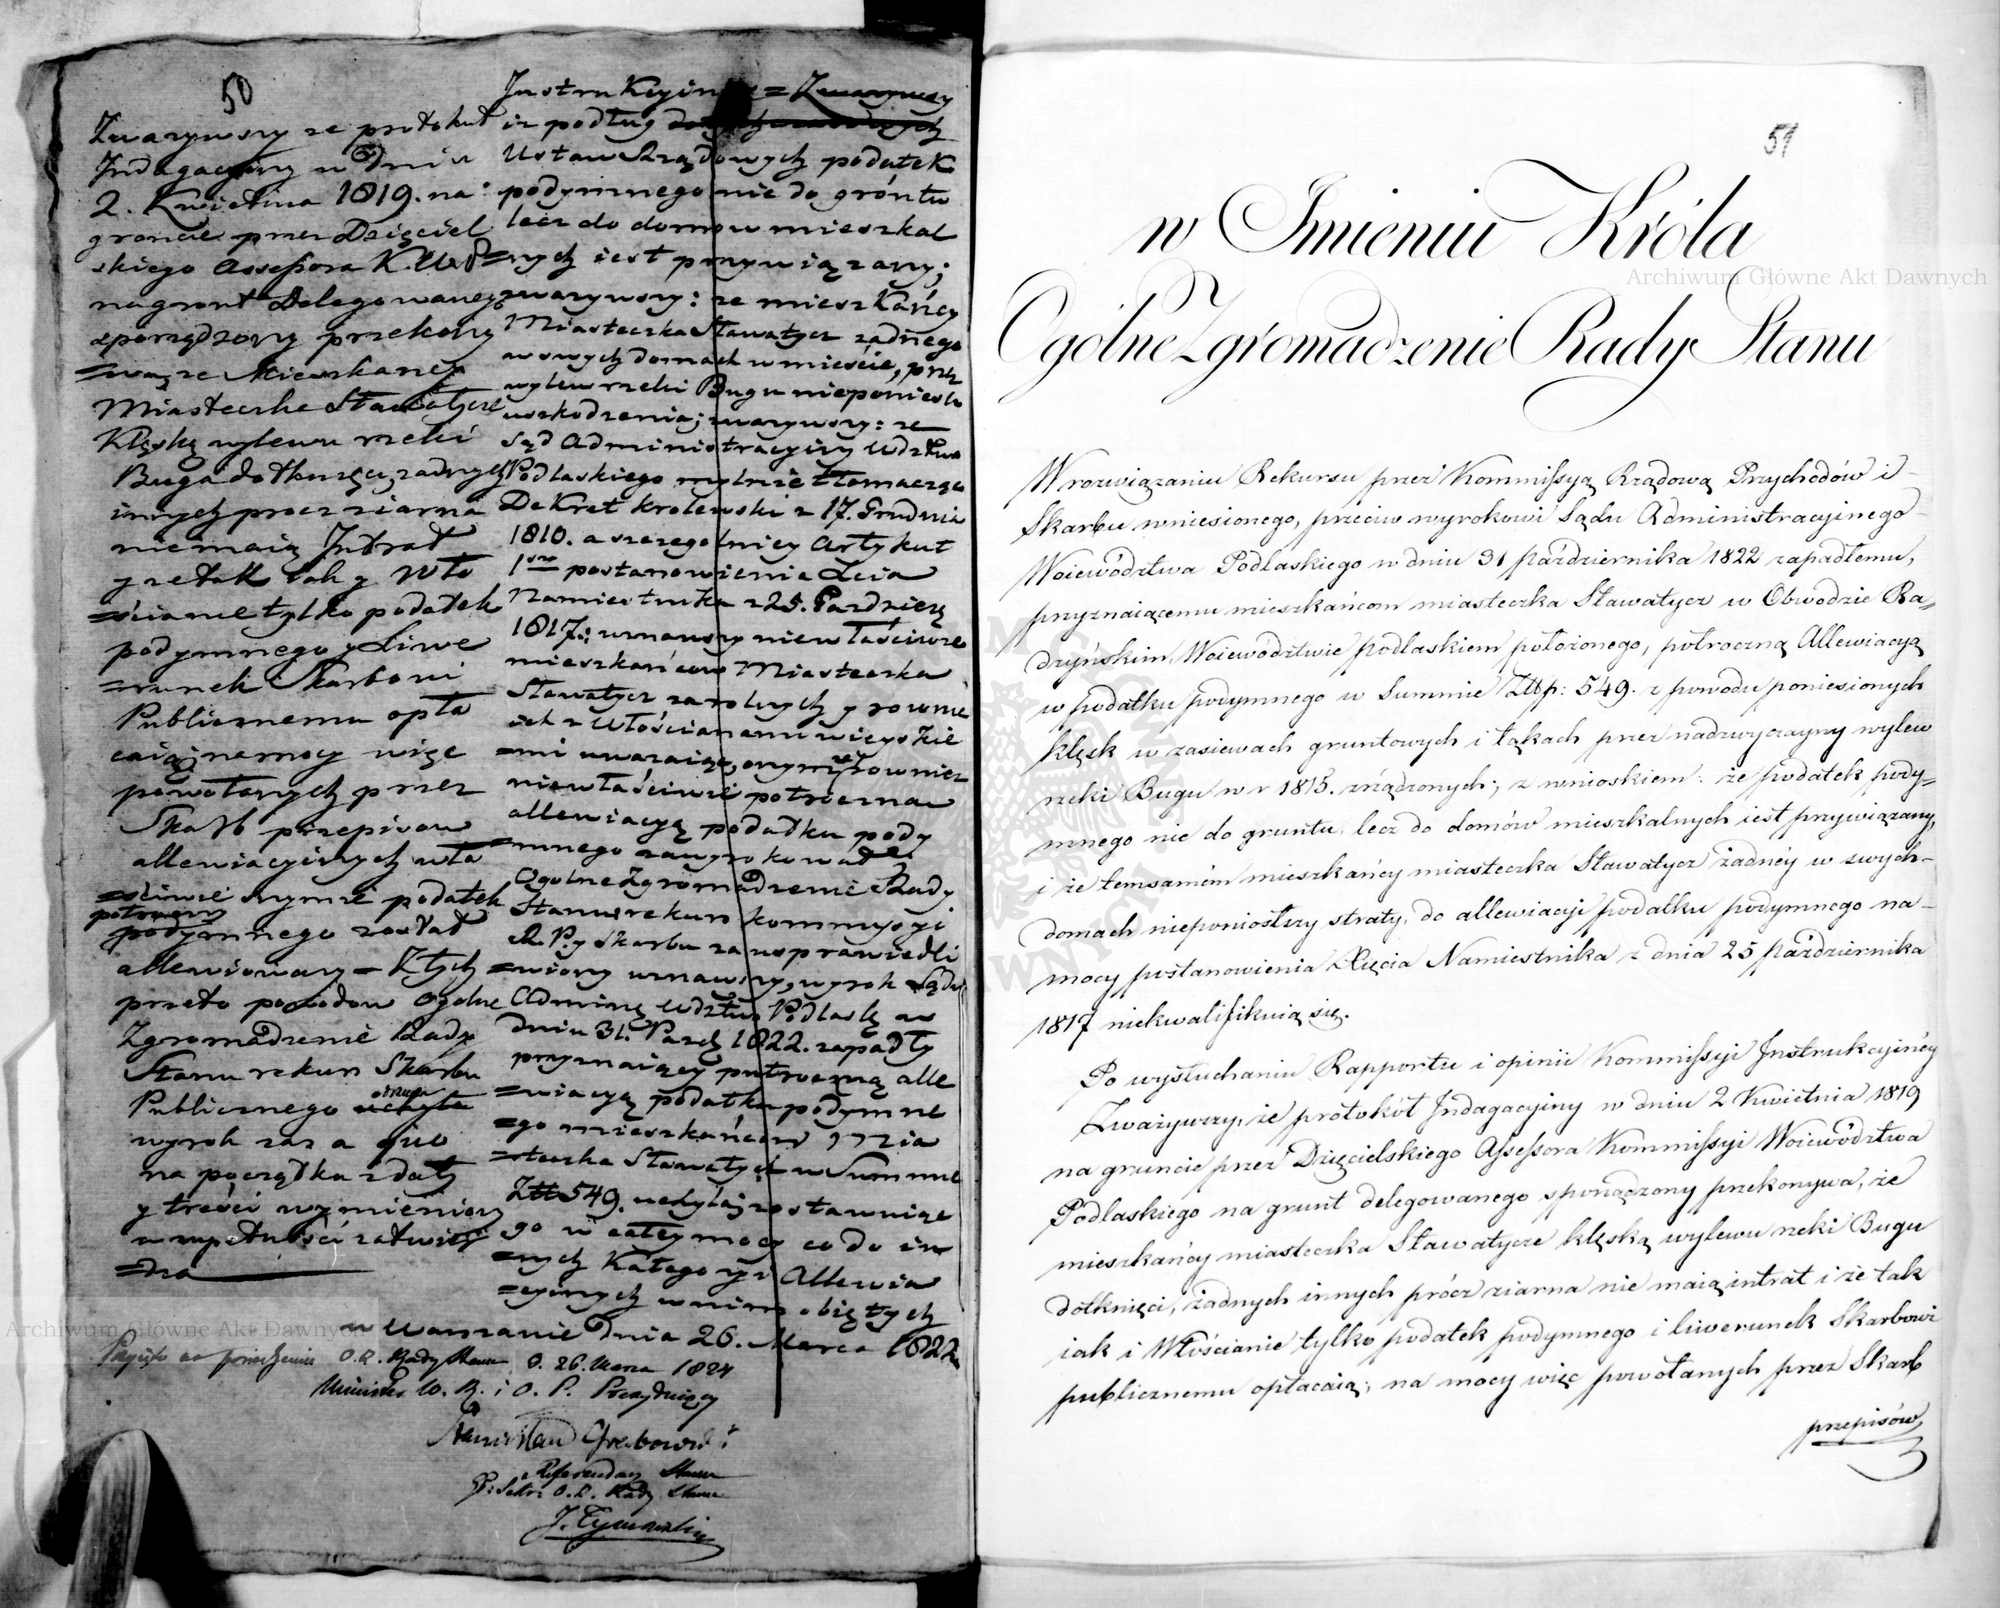 50
Zważywszy że protokuł
Indagacyiny w dniu
2. Kwietnia 1819. na
groncie przez Dzięciel
skiego Assessora K. Wdz
na gront Delegowanego
sporządzony przekony
=wa, że Mieszkańcy
Miasteczka Sławatycze
Klęską wylewu rzeki
Buga dotknięci, żadnych
innych procz ziarna
nie maią Intrat
y że tak iak y Wło
=ścianie tylko podatek
podymnego y Liwe
=runek Skarbowi
Publicznemu opła
caią; na mocy więc
powołanych przez
Skarb przepisow
allewiacyinych wła
=ściwie onymże podatek
połroczny
podymnego został
allewiowany = Z tych
przeto powodow Ogolne
Zgromadzenie Rady
Stanu rekurs Skarbu
Publicznego
wyrok zaś a quo
na początku z daty
y treści wymieniony
w zupełności zatwier
=dza
Instrukcyiney = Zważywszy
iż podług
Ustaw Rządowych podatek
podymnego nie do gróntu
lecz do domow mieszkal
=nych iest przywiązany;
zważywszy: że mieszkańcy
Miasteczka Sławatycz żadnego
w swych domach w mieście, przez
wylew rzeki Bugu nieponieśli
uszkodzenia; zważywszy: że
Sąd Administracyiny Wdztwa
Podlaskiego mylnie tłomacząc
Dekret Krolewski z 17. Grudnia
1810. a szczegolniey Artykuł
1szy postanowienia Xcia
Namiestnika z 25. Pazdzier
1817; uznawszy niewłaściwie
mieszkańcow Miasteczka
Sławatycz za rolnych y rownie
ich z Włościanami wieyskie
=mi uważaiąc, onym że rownież
niewłaściwie połroczna
allewiacyą podatku pody
=mnego zawyrokował
Ogolne Zgromadzenie Rady
Stanu rekurs kommyssyi
R. P. y Skarbu za usprawiedli
=wiony uznawszy, wyrok Sądu
Admin: Wdztwa Podlask: w
dniu 31. Pazdz 1822. zapadły
przyznaiący połroczną alle
=wiacyą podatku podymne
=go mieszkańcom Mia
=steczka Sławatycz w Summie
Złt 549. uchyla, zostawuiąc
go w całey mocy co do in
=nych Kategoryi Allewia
=cyinych w nim obiętych
w Warszawie dnia 26. Marca 1822
Przyięto na posiedzeniu O. Z. Rady Stanu d. 26. Marca 1824
Minister W. R. i O. P. Prezyduiący
Stanisław Grabowski
Referendarz Stanu
P: Sekr: O. Z. Rady Stanu
J. Tymowski
51
w Imieniu Króla
Ogólne Zgromadzenie Rady Stanu
W rozwiązaniu Rekursu przez Kommissyą Rządową Przychodów i
Skarbu wniesionego, przeciw wyrokowi Sądu Administracyjnego
Woiewództwa Podlaskiego w dniu 31 października 1822 zapadłemu,
przyznaiącemu mieszkańcom miasteczka Sławatycz w Obwodzie Ra=
dzyńskim, Woiewództwie podlaskiem położonego, półroczną Allewiacyą
w podatku podymnego w Summie Złtp: 549. z powodu poniesionych
klęsk w zasiewach gruntowych i łąkach przez nadzwyczayny wylew
rzeki Bugu w r 1815. zrządzonych; z wnioskiem: że podatek pody=
mnego nie do gruntu, lecz do domów mieszkalnych iest przywiązany,
i że temsamém mieszkańcy miasteczka Sławatycz żadnéy w swych
domach nieponiósłszy straty, do allewiacyi podatku podymnego na
mocy postanowienia Xięcia Namiestnika z dnia 25 października
1817 niekwalifikuią się.
Po wysłuchaniu Rapportu i opinii Kommissyi Instrukcyjnéy
Zważywszy, że protokół Indagacyjny w dniu 2 Kwietnia 1819
na gruncie przez Dzięcielskiego Assessora Kommissyi Woiewództwa
Podlaskiego na grunt delegowanego sporządzony przekonywa, że
mieszkańcy miasteczka Sławatycze klęską wylewu rzeki Bugu
dotknięci, żadnych innych prócz ziarna nie maią intrat i że tak
iak i Włościanie tylko podatek podymnego i liwerunek Skarbowi
publicznemu opłacaią; na mocy więc powołanych przez Skarb
przepisów,
Archiwum Główne Akt Dawnych
Archiwum Główne Akt Dawnych